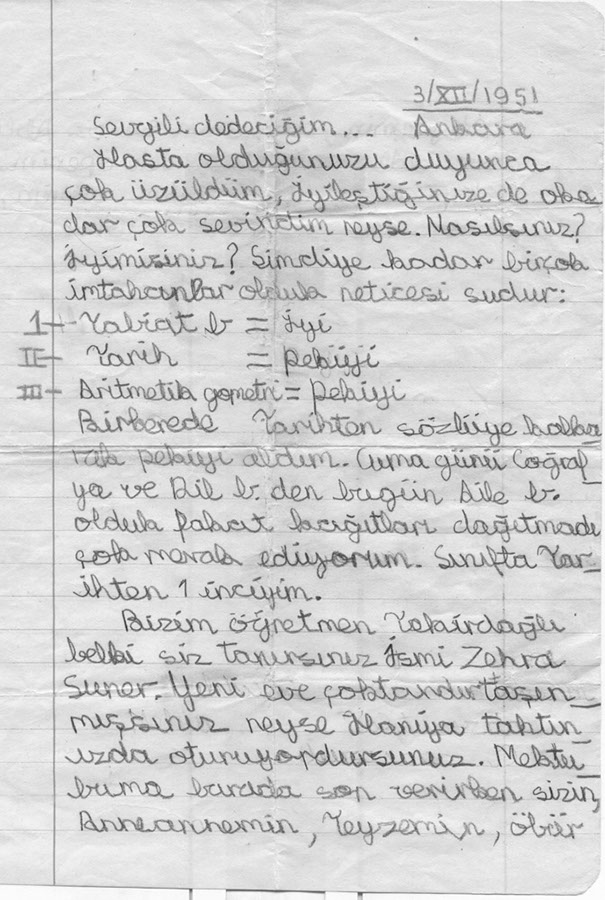 3/XII/1951
Sevgili dedeciğim. Ankara
Hasta olduğunuzu duyunca
çok üzüldüm, İyileştiğinize de oka
dar çok sevindim neyse. Nasılsınız?
İyimisiniz? Simdiye kadar birçok
imtahanlar olduk neticesi sudur:
1- Tabiat b = İyi
II- Tarih = pekiyi
III- Aritmetik geometri = pekiyi
Birkerede Tarihten sözlüye kalka
rak pekiyi aldım. Cuma günü Coğraf_
ya ve Dil b. den bugün Aile b.
olduk fakat kağıtları dağıtmadı
çok merak ediyorum. Sınıfta Tar_
ihten 1 inciyim.
Bizim öğretmen Tekirdağlı
belki siz tanırsınız İsmi Zehra
Suner. Yeni eve çoktandır taşın_
mışsınız neyse Haniya tahtın_
ızda oturuyordursunuz. Mektu_
buma burada son verirken sizin,
Anneannemin, Teyzemin, öbür